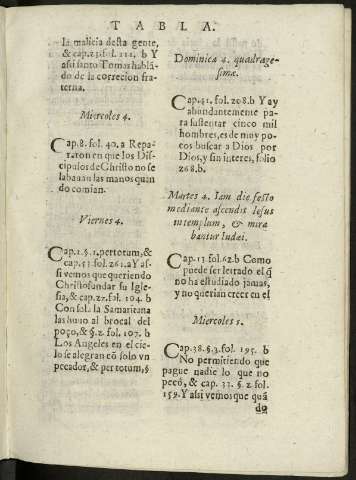 TABLA.
la malicia desta gente,
& cap.23.fol. 111. b Y
assi santo Tomas hablã
do de la correcion fra
terna.
Miercoles 4.
Cap.8. fol. 40. a Repa
raron en que los Dis
cipulos de Christo no se
labauan las manos quan
do comian.
Viernes 4.
Cap.1.§.1.per totum,&
cap.53.fol.261.a Y as
si vemos que queriendo
Christo fundar su Igle
sia, & cap.27. fol. 104. b
Con sol la Samaritana
las huuo al brocal del
poço, & §.2. fol. 107. b
Los Angeles en el cie-
lo se alegran cõ solo vn
pecador, & per totum, §
Dominica 4. quadrage-
simæ.
Cap.41. fol. 208.b Y ay
abundantemente pa-
ra sustentar cinco mil
hombres, es de muy po-
cos buscar a Dios por
Dios, y sin interes, folio
268.b.
Martes 4. Iam die festo
mediante ascendit Iesus
in templum, & mira
bantur Iudæi.
Cap.13.fol.62.b Como
puede ser letrado el q̃
no ha estudiado jamas,
y no querian creer en el
Miercoles 1.
Cap.38.§.3.fol. 195. b
No permitiendo que
pague nadie lo que no
pecó, & cap. 33. §. 2 fol.
159. Y assi vemos que quã
do